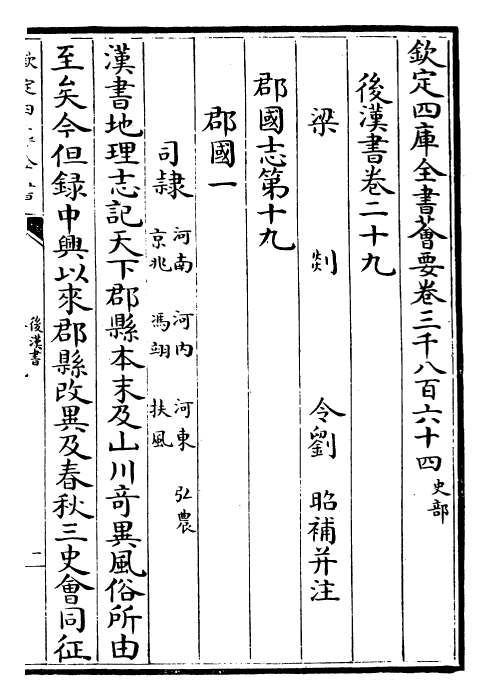 欽定四庫全書薈要卷三千八百六十四 史部
後漢書卷二十九
梁 剡 令劉 昭補并注
郡國志第十九
郡國一
司隸 河南 河內 河東 弘農
京兆 馮翊 扶風
漢書地理志記天下郡縣本末及山川竒異風俗所由
至矣今但録中興以來郡縣改異及春秋三史會同征
欽定四庫全書
後漢書